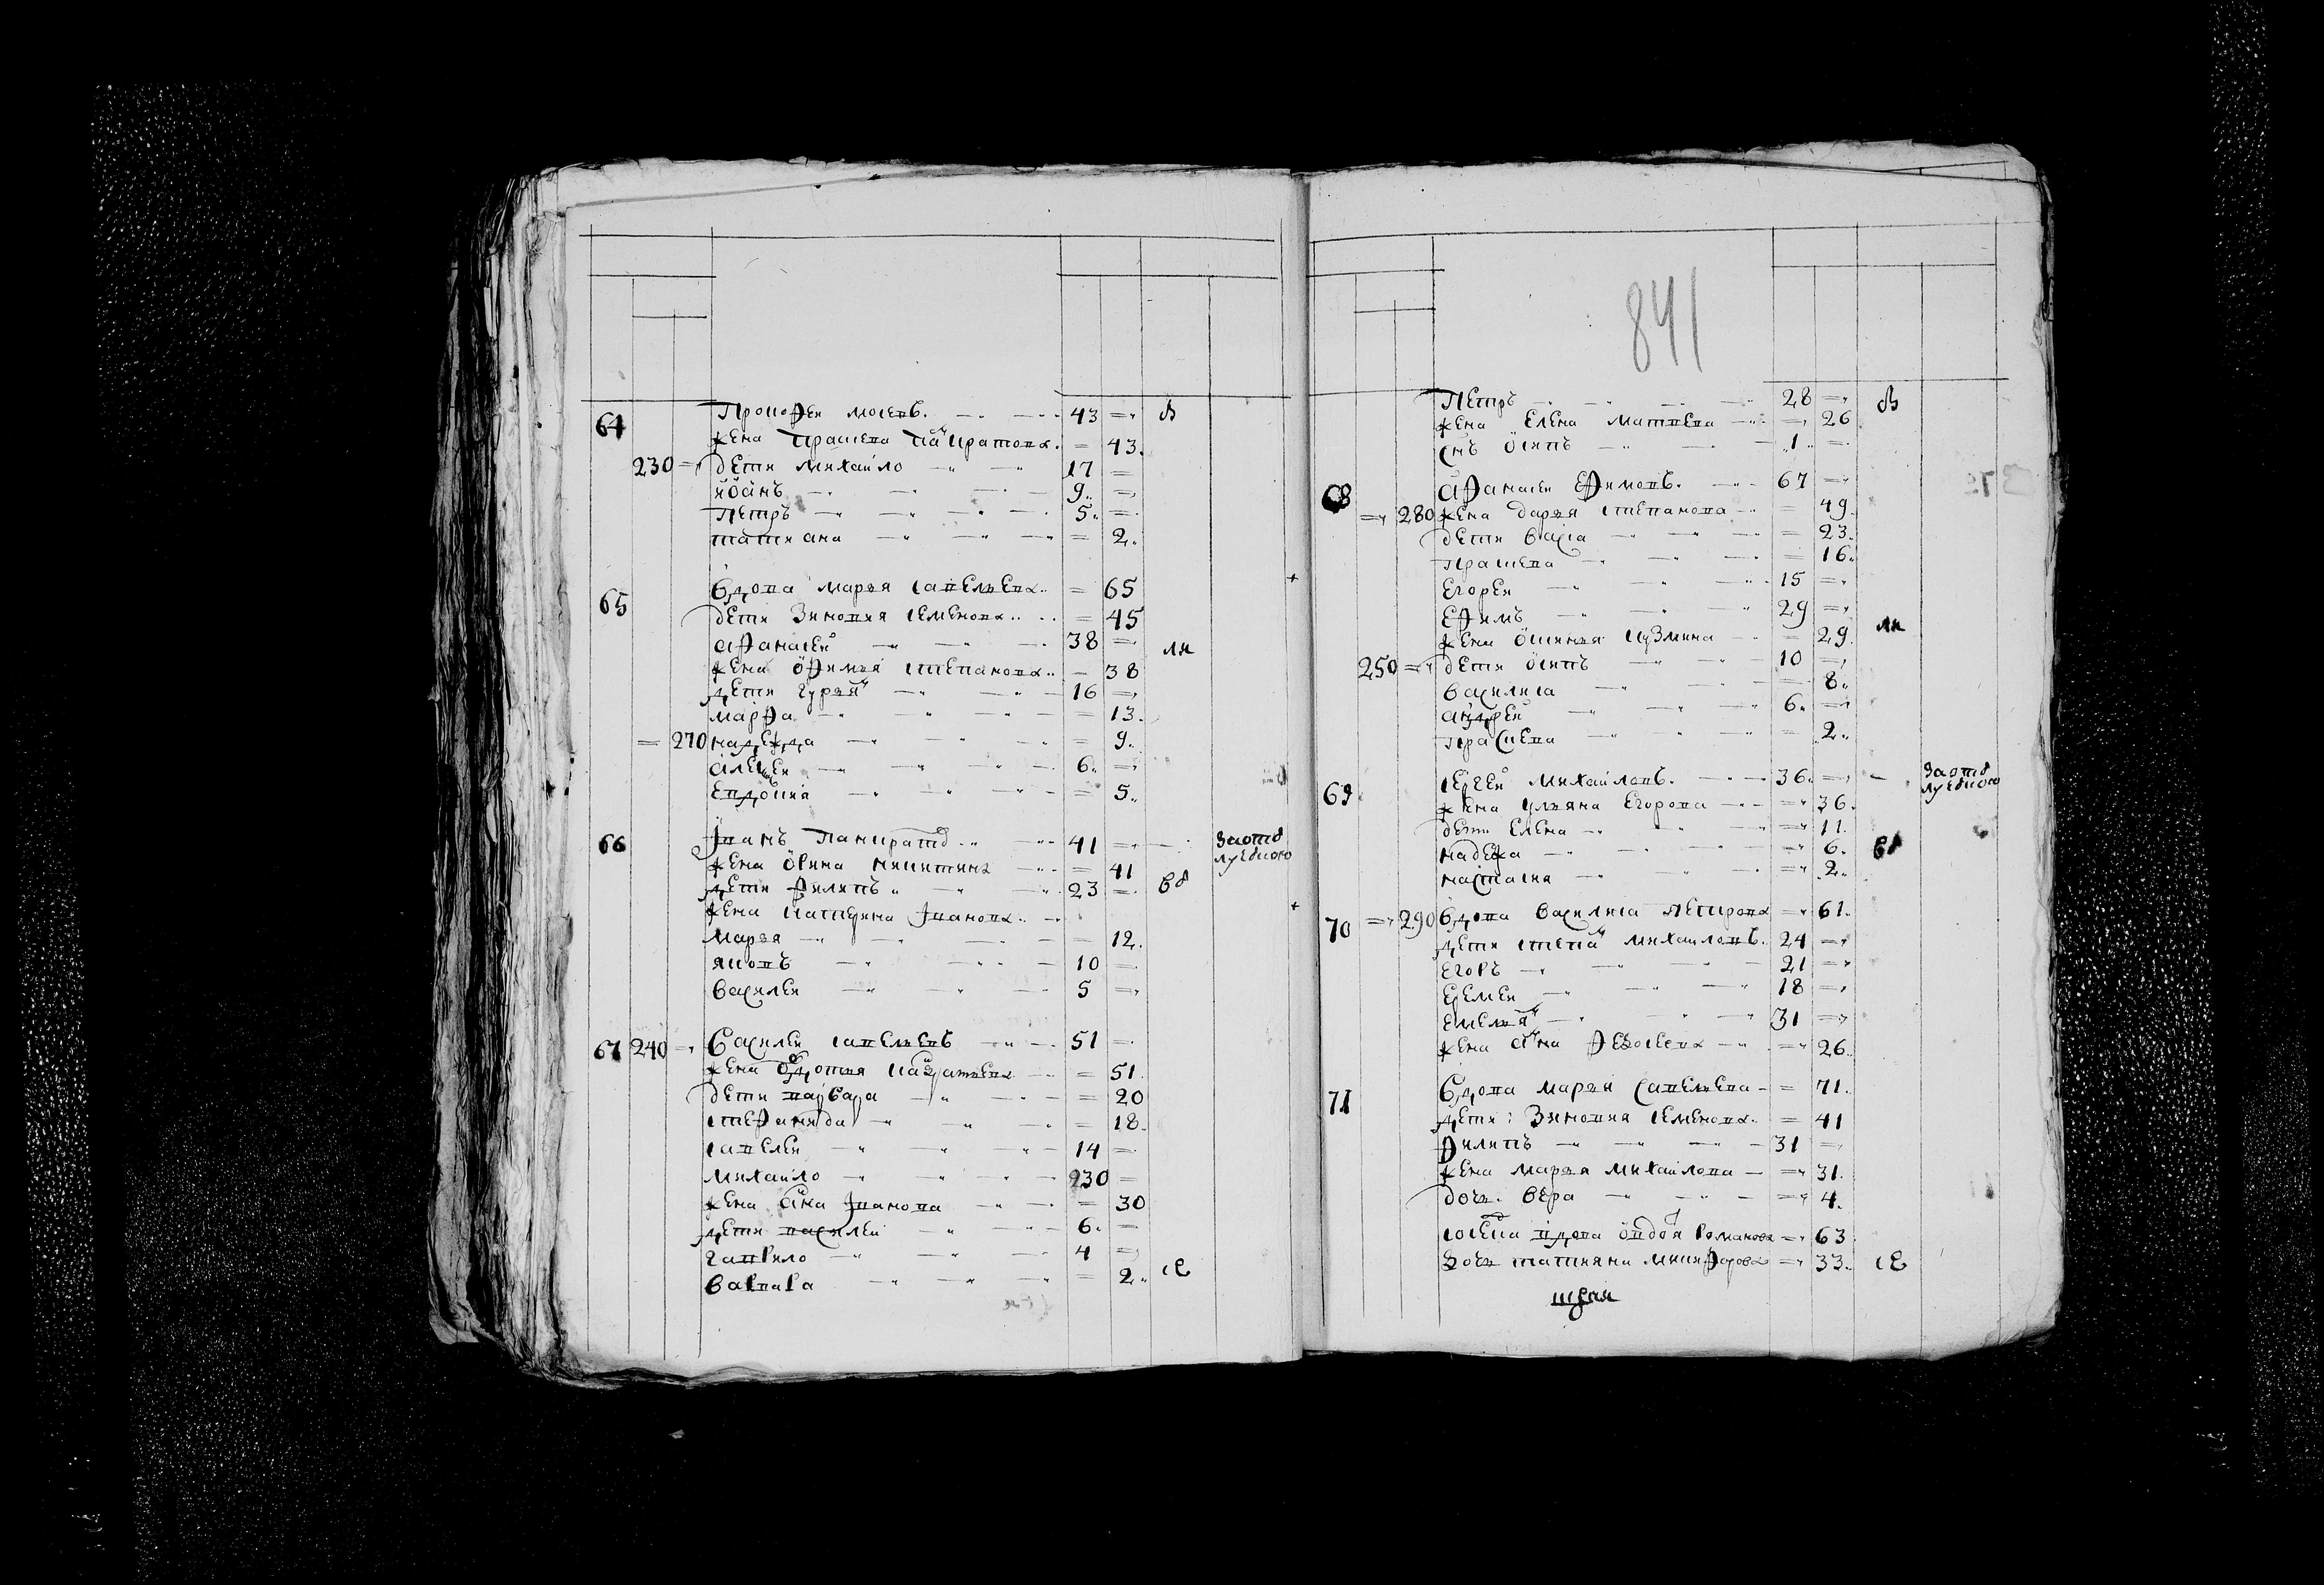 64 Прокофеи мосевъ. 43 = в
жена Праскева Панкратова. = 43.
230 = дети Михаило 17 =
иванъ 9 =
Петръ 5 =
татиана = 2
65 Вдова марья савельева = 65
дети Зиновия семенова = 45
афанасеи 38 = ли
жена офимья степанова = 38
дети гурьян 16 =
марфа = 13.
= 270 надежда = 9
алексеи 6 =
евдокия = 5
66 Иванъ Панкратов 41 = за отб
лучкою
жена орина никитина = 41
дети филипъ 23 = вб
жена катерина Иванова
Марья = 12.
яковъ 10 =
василеи 5 =
67 240 = Василеи савельевъ 51 =
жена вдотья = 51.
дети варвара = 20
стефанида = 18.
савелеи 14 =
михаило 230 =
жена анна Иванова = 30
дети василеи 6 =
гаврило 4 =
варвара = 2 се
841
Петръ 28 = в
жена Елена Матвева = 26
снъ осипъ 1 =
68 Афанасеи Ефимовъ. 67 =
= 280 жена дарья степанова = 49
дети васса = 23
Праскева = 16
Егореи 15 =
Ефимъ 29 = ли
жена оксинья кузмина = 29.
250 = дети осипъ 10 =
василиса = 8
андреи 6 =
Праскева = 2
69 сергеи михаиловъ. 36 = за отб
лучкою
жена ульяна Егорова = 36.
дети Елена = 11.
надежа = 6. вб
настасия = 2
70 = 290 Вдова василиса Петрова = 61.
дети степан михаиловъ. 24 =
Егоръ 21 =
Еремеи 18 =
Емельян 31 =
жена анна федосеева = 26.
71 Вдова марья савельева = 71.
дети: Зиновия семенова = 41
филипъ 31 =
жена марья михаилова = 31.
дочь вера = 4.
вдова овдотья Романова = 63
дочь татияна никифорова = 33 се